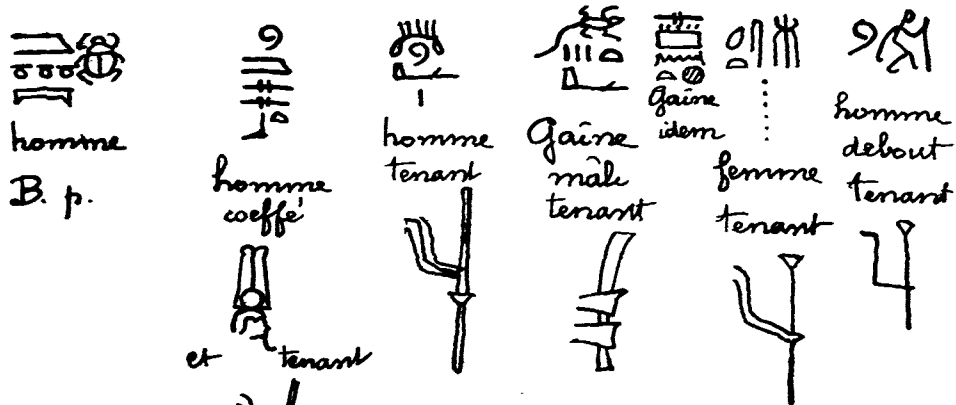 homme
B. p.
homme
coeffé
et tenant
homme
tenant
Gaîne
mâle
tenant
Gaîne
idem
femme
tenant
homme
debout
tenant